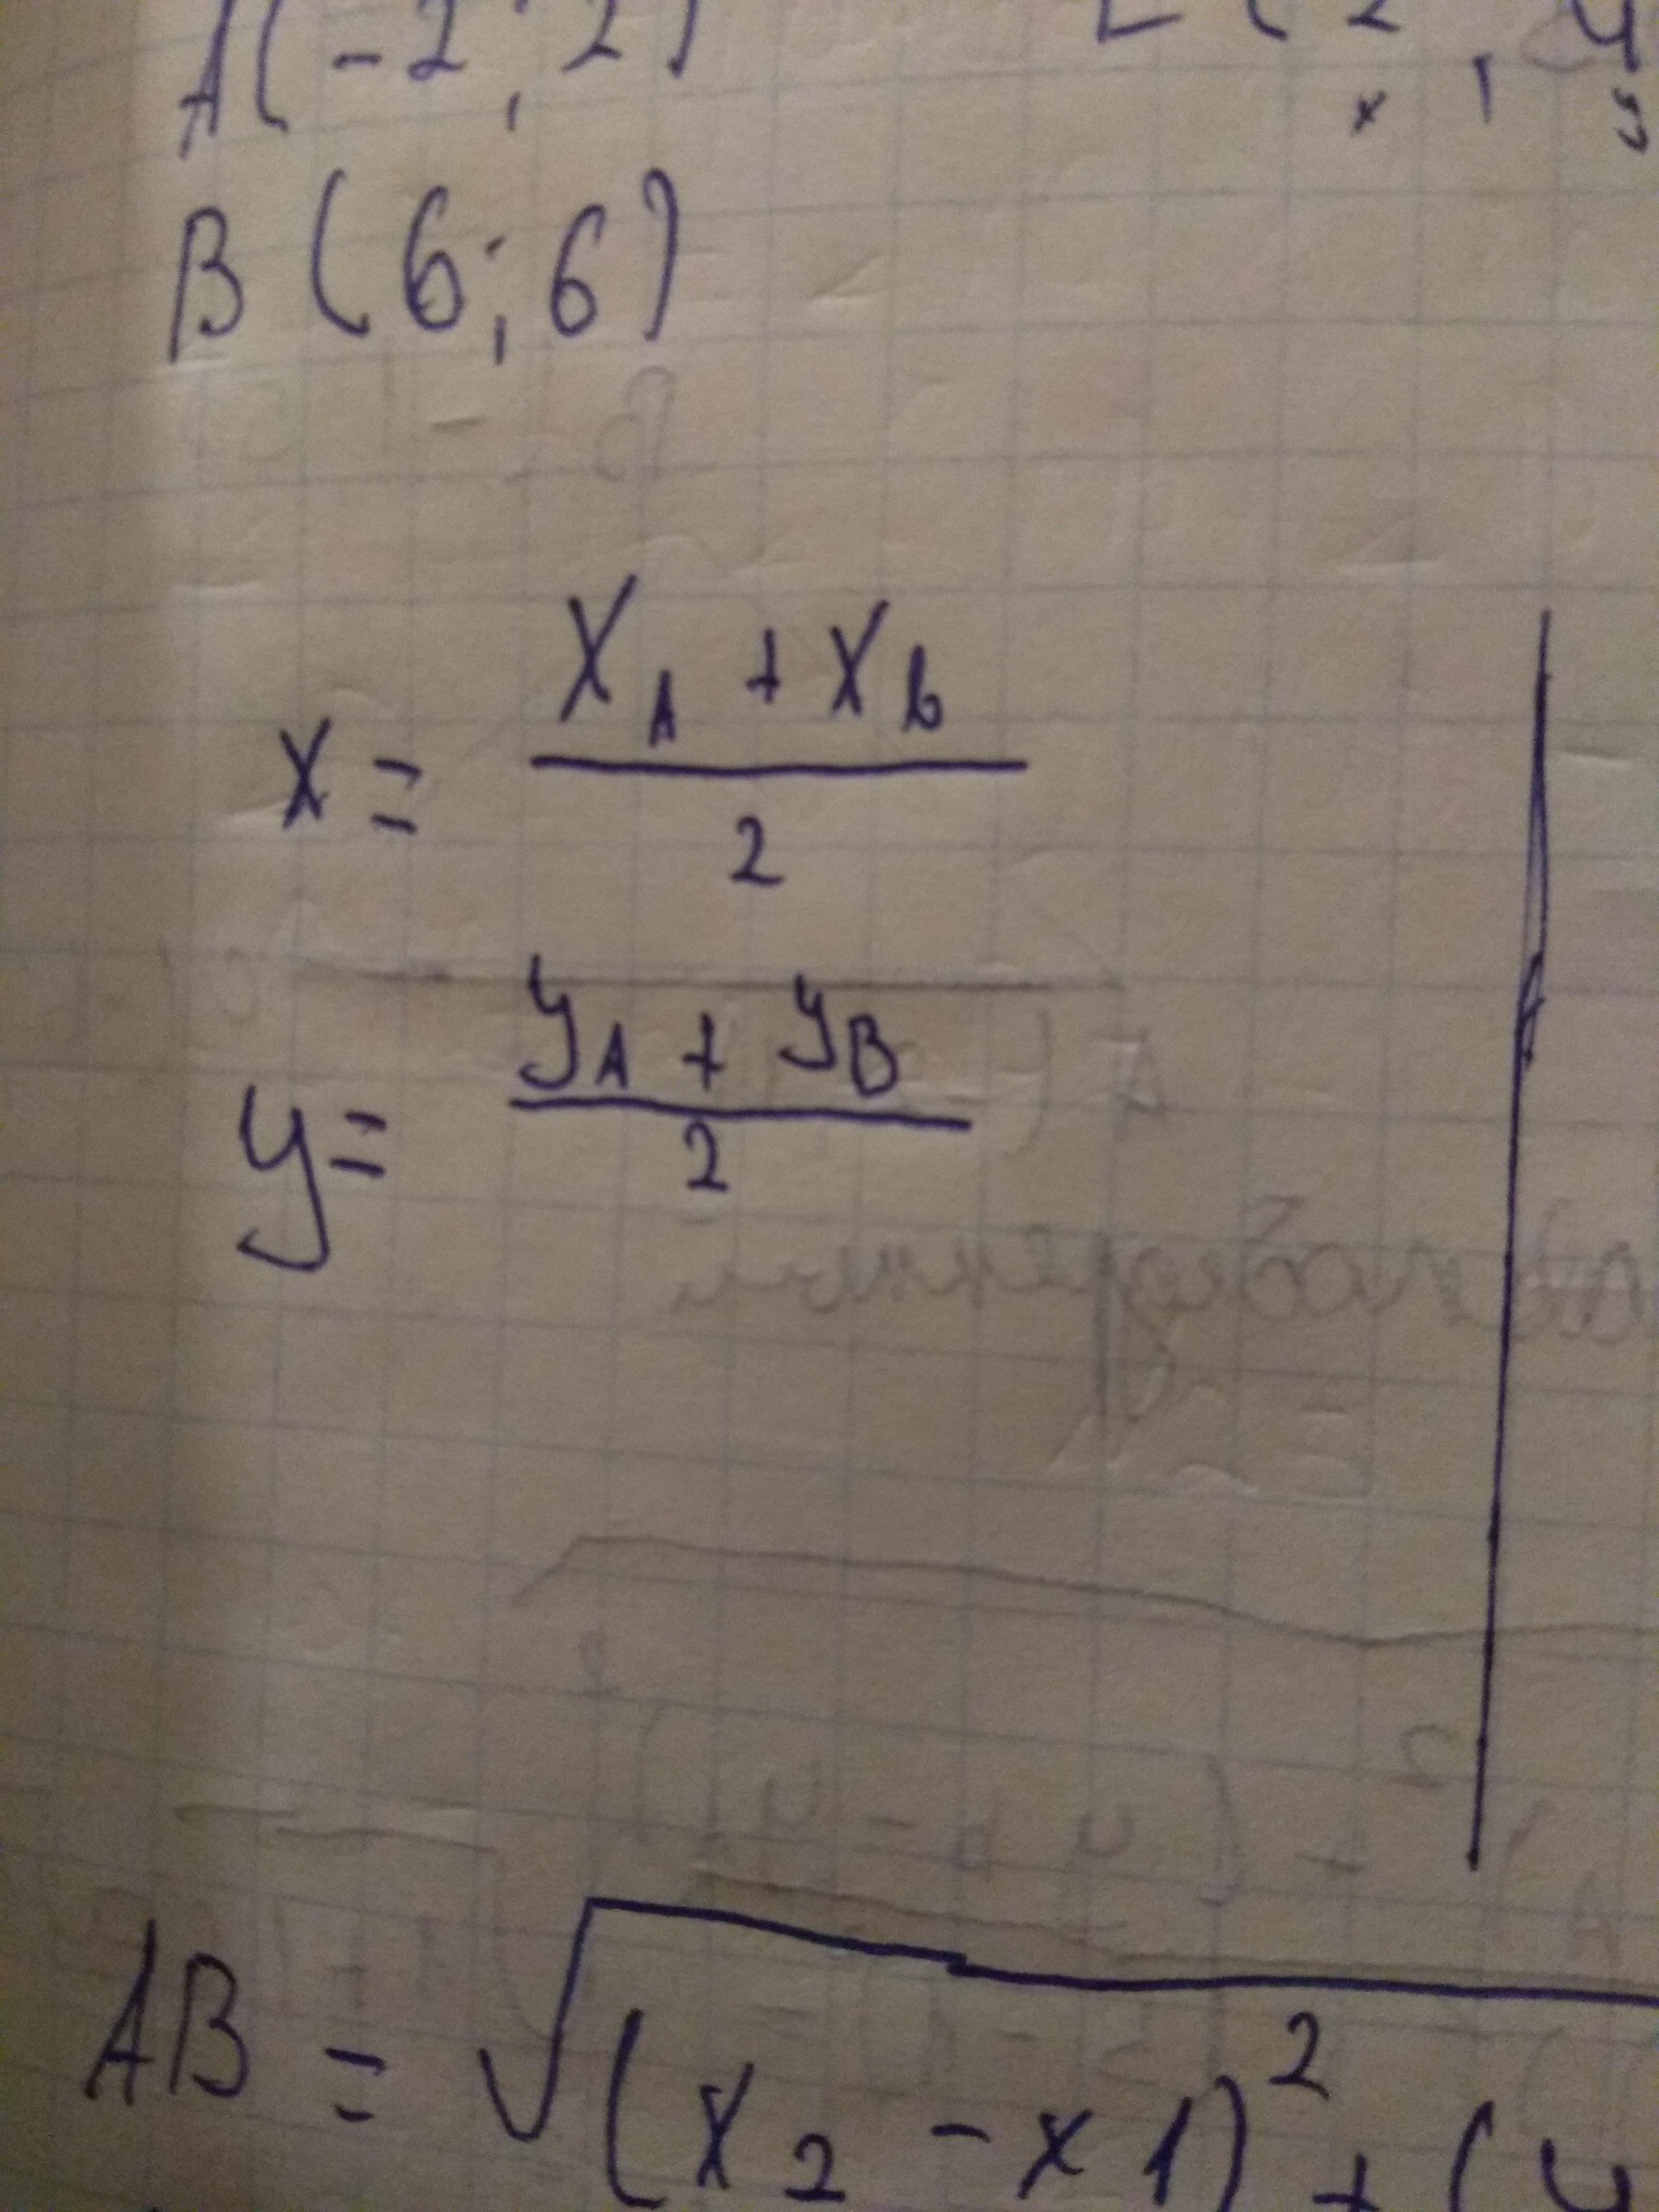 A(-2;2)
B(6;6)
x = (x_A + x_B) / 2
y = (y_A + y_B) / 2
AB = √(x_2 - x1)^2 + (y